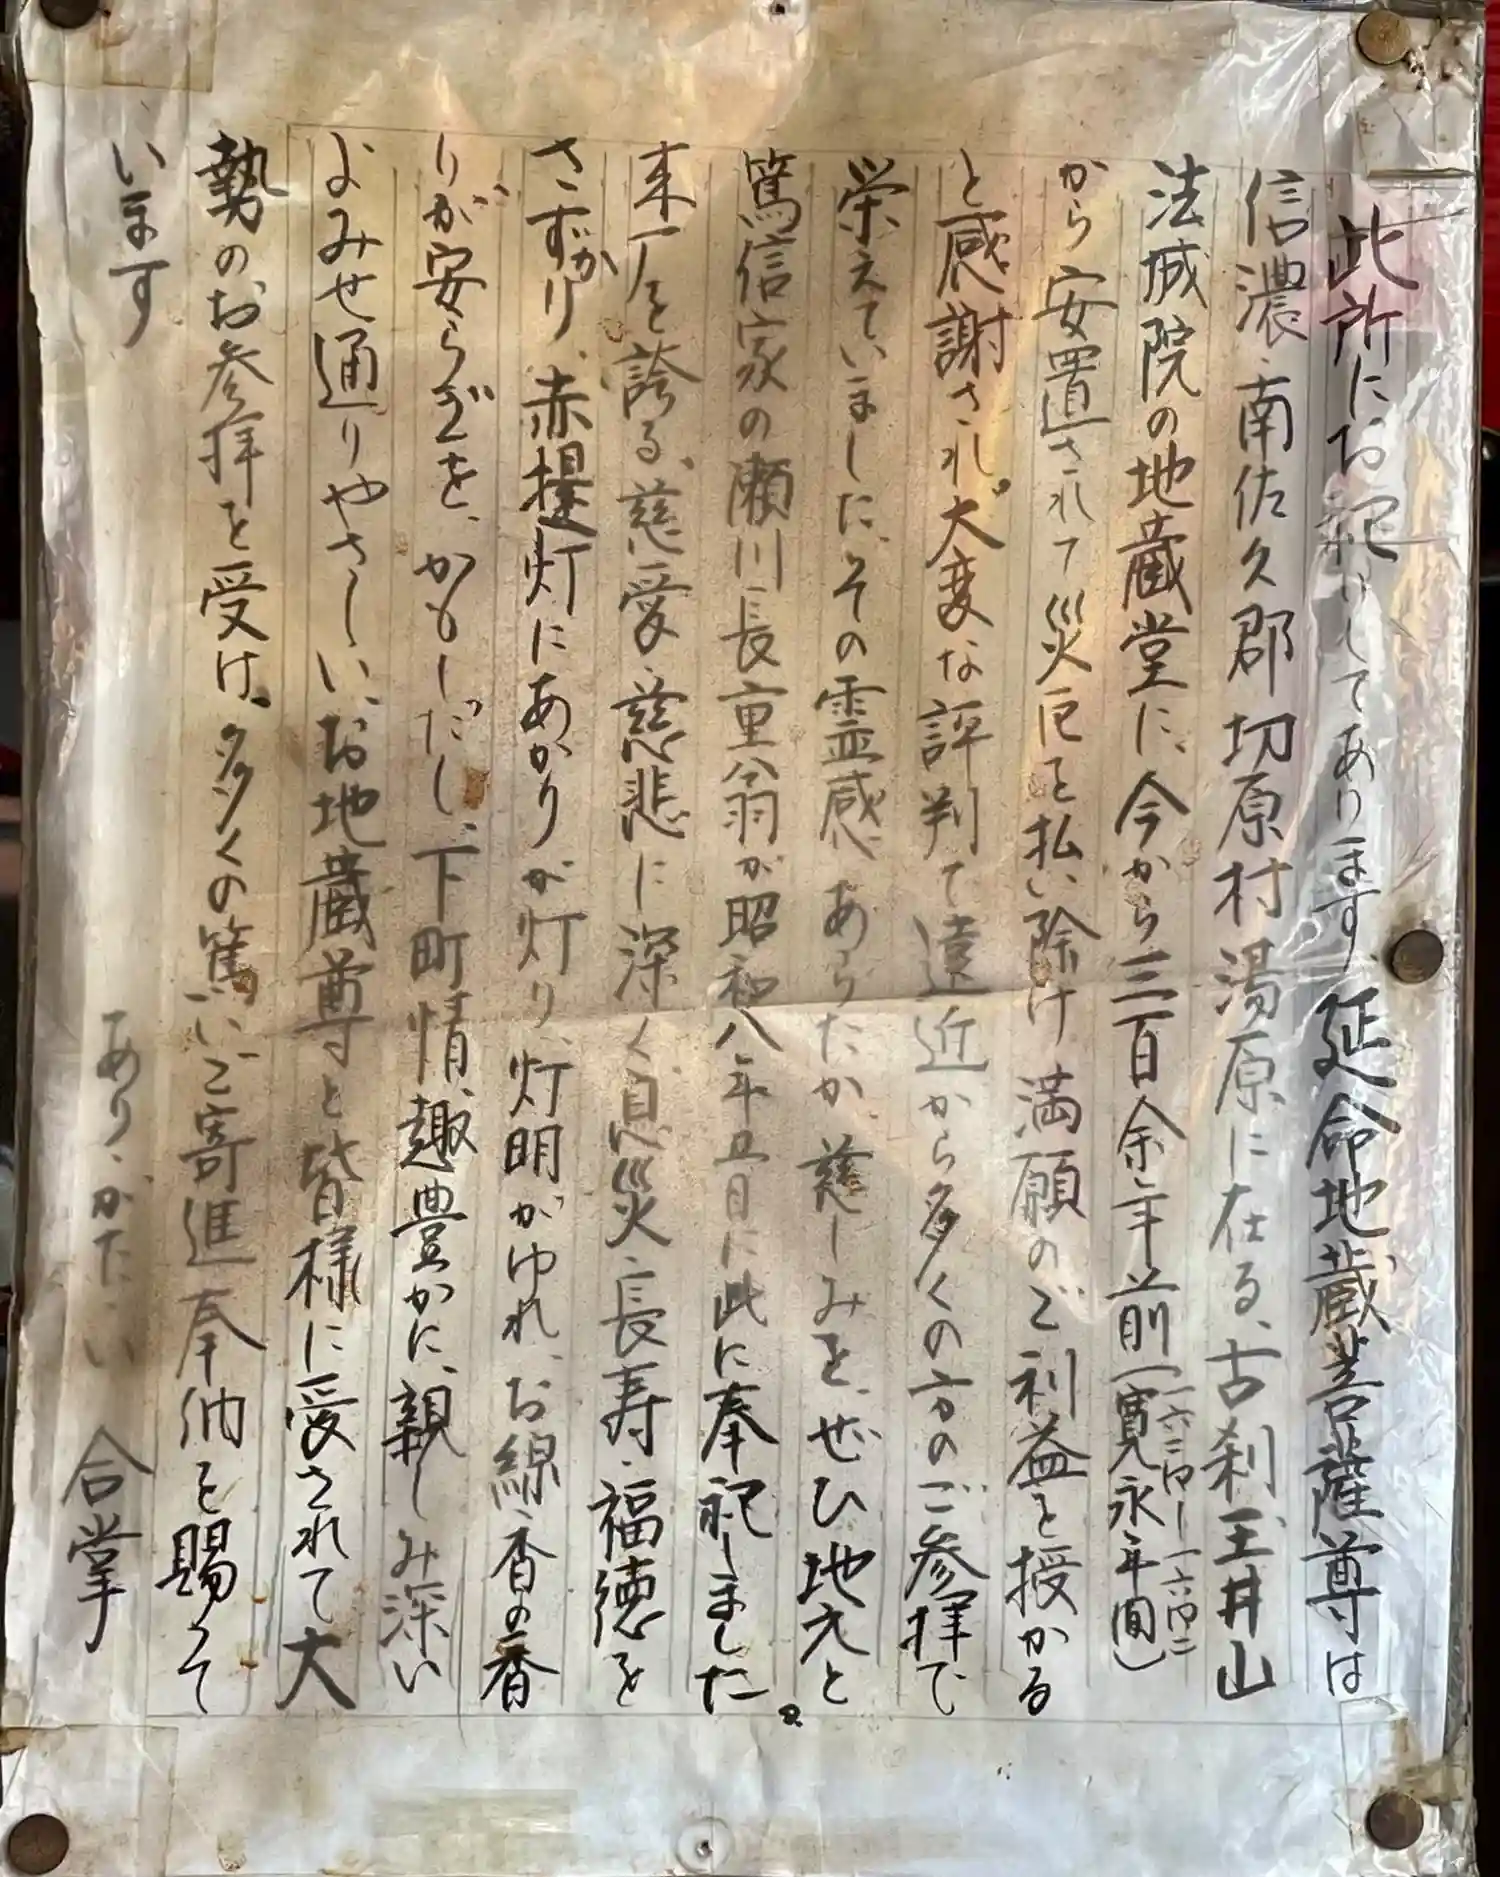 此所にお祀りしてあります延命地蔵菩薩尊は
信濃、南佐久郡切原村湯原に在る、古刹王井山
法城院の地蔵堂に、今から三百余年前(寛永年間)
一六二四ー一六四二
から安置されて災厄を払い除け満願のご利益を授かる
と感謝され。大変な評判で遠近から多くの方のご参拝で
栄えていました、その霊感あらたか慈しみを、ぜひ地元と
篤信家の瀬川長重翁が昭和八年五日に此に奉祀しました。
来り、を誇る、慈愛、慈悲に深く息災、長寿、福徳を
さずかり、赤提灯にあかりが灯り、灯明がゆれ、お線香の香
りが安らぎを、かもしだし、下町情趣豊かに、親しみ深い
よみせ通りやさしい、お地蔵尊と皆様に愛されて大
勢のお参拝を受け、多くの篤いご寄進奉納を賜って
います
あり、がたい　合掌